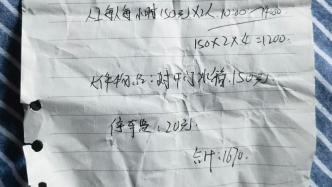 人工每人每小时150元×2人 10:00-14:00
150×2×4=1200.
大件物品:对开门冰箱.150元
停车费:20元.
总计:1670.